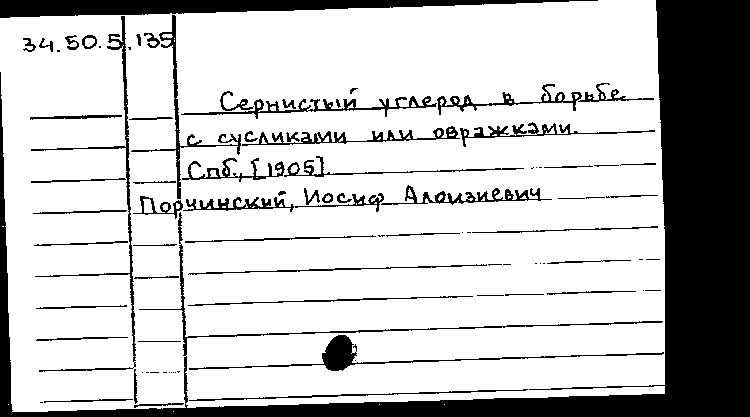 34.50.5.135
Сернистый углерод в борьбе
с сусликами или овражками.
Спб., [1905].
Порчинский, Иосиф Алоизиевич